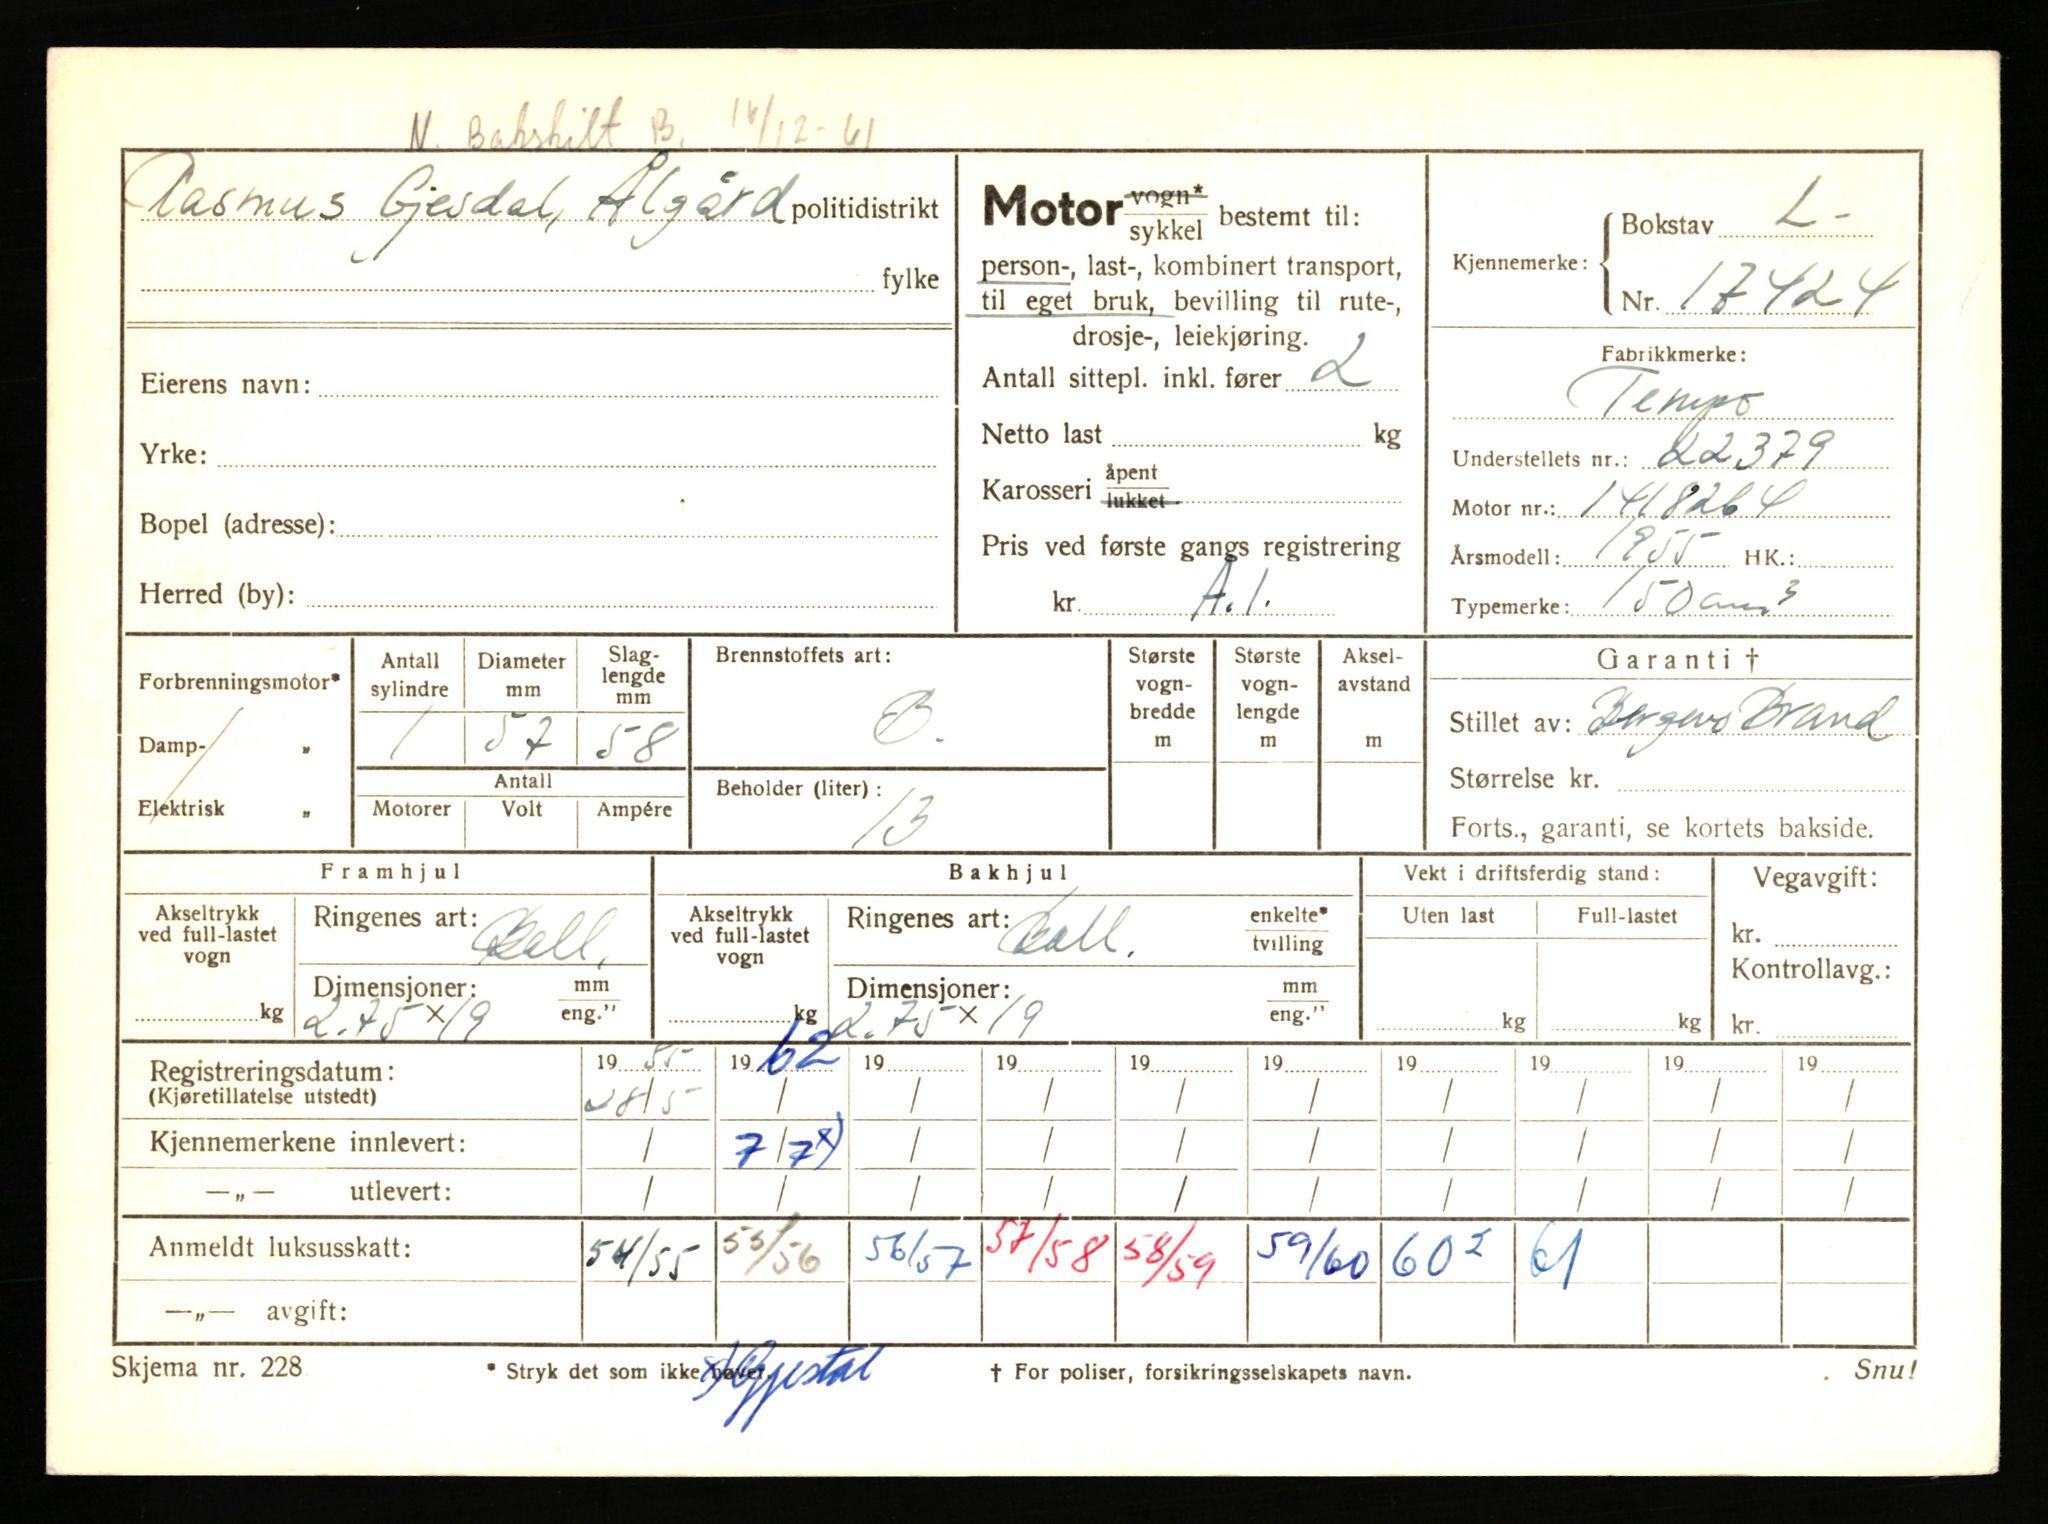 N. Bakskilt B. 14/12-61
Rasmus Gjesdal, Ålgård politidistrikt
fylke
Eierens navn:
Yrke:
Bopel (adresse):
Herred (by):
Motor vogn* / sykkel bestemt til:
person-, last-, kombinert transport,
til eget bruk, bevilling til rute-,
drosje-, leiekjøring.
Antall sittepl. inkl. fører 2
Netto last kg
Karosseri åpent / lukket
Pris ved første gangs registrering
kr. A.l.
Kjennemerke: Bokstav L-
Nr. 17424
Fabrikkmerke:
Tempo
Understellets nr.: 22379
Motor nr.: 1418264
Årsmodell: 1955 HK.:
Typemerke: 150 cm³
Forbrenningsmotor*
Damp- „
Elektrisk „
Antall sylindre 1
Diameter mm 57
Slaglengde mm 58
Antall
Motorer Volt Ampére
Brennstoffets art:
B.
Beholder (liter):
13
Største vognbredde m
Største vognlengde m
Akselavstand m
Garanti †
Stillet av: Bergens Brand
Størrelse kr.
Forts., garanti, se kortets bakside.
Framhjul
Akseltrykk ved full-lastet vogn
kg
Ringenes art: Ball.
Dimensjoner: mm / eng."
2.75 x 19
Bakhjul
Akseltrykk ved full-lastet vogn
kg
Ringenes art: Ball. enkelte* / tvilling
Dimensjoner: mm / eng."
2.75 x 19
Vekt i driftsferdig stand:
Uten last Full-lastet
kg kg
Vegavgift:
kr.
Kontrollavg.:
kr.
Registreringsdatum: 19 55 19 62 19 19 19 19 19 19 19 19
(Kjøretillatelse utstedt) 28/5 / / / / / / / / /
Kjennemerkene innlevert: / 7/7 x) / / / / / / / /
—„— utlevert: / / / / / / / / / /
Anmeldt luksusskatt: 54/55 55/56 56/57 57/58 58/59 59/60 60² 61
—„— avgift:
Skjema nr. 228 * Stryk det som ikke høver. † For poliser, forsikringsselskapets navn. Snu!